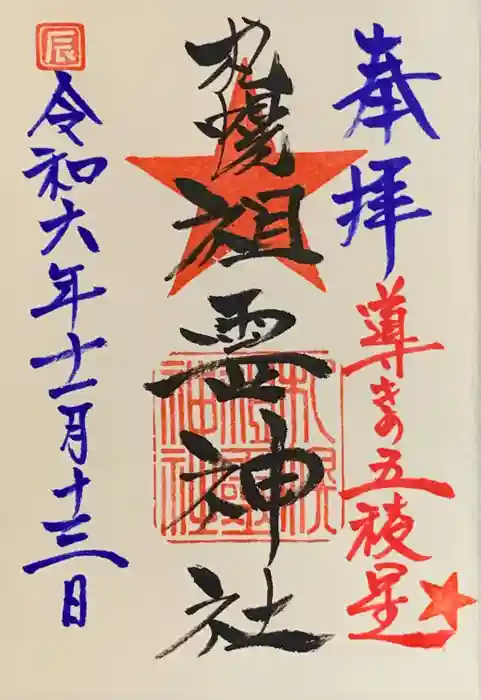 奉拝
導きの五稜星
札幌祖霊神社
札幌祖霊神社
辰
令和六年十一月十三日